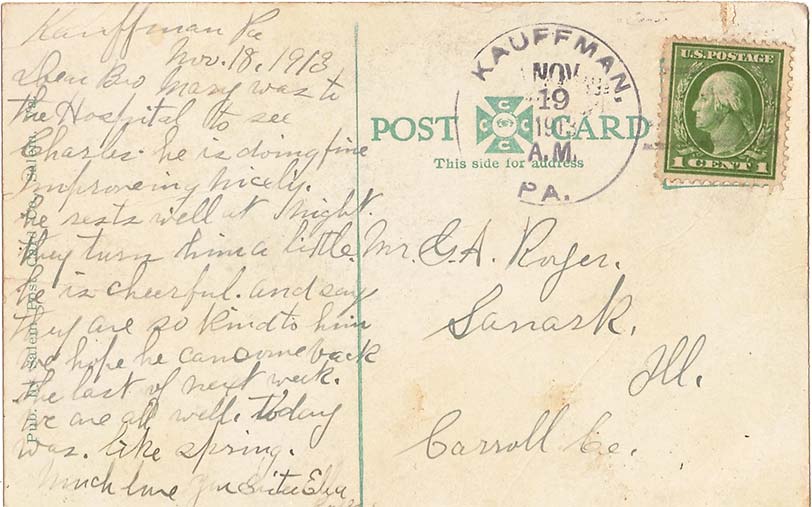 Kauffman Pa
Nov. 18, 1913
Dear Bro Mary was to
the Hospital to see
Charles. he is doing fine
Improveing nicely.
he rests well at night.
they turn him a little.
he is cheerful. and say
they are so kind to him
we hope he can come back
the last of next week.
we are all well. today
was. like spring.
Much love your Sister
POST CARD
C C C C
This side for address
KAUFFMAN.
NOV
19
A.M.
PA.
U.S. POSTAGE
1 CENT 1
Mr. G. A. Royer.
Lanark.
Ill.
Carroll Co.
Pub. by Salem Post Card Co., Salem